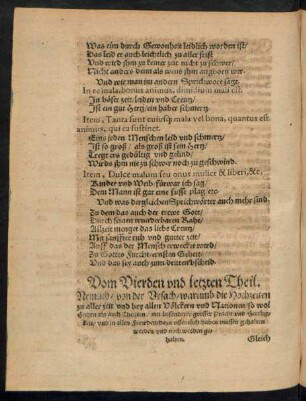 Was eim durch Gewonheit leidlich worden ist/
Das leid er auch leichtlich zu aller frist
Und wird jhm zu keiner zeit nicht zu schwer/
Nicht anders denn als wens jhm angborn wer.
Und wie man im andern Sprichwort sagt:
In re mala, bonus animus, dimidium mali est.
In böser zeit leiden und Creutz/
Ist ein gut Hertz/ ein halber schmertz.
Item, Tanta sunt cuiusq; mala vel bona, quantus est
animus, qui ea sustinet.
Eins jeden Menschen leid und schmertz/
Ist so groß/ als groß ist sein Hertz/
Tregt ers gedültig und gelind/
Wirds jhm nie zu schwer noch zu geschwind.
Item, Dulce malum seu onus mulier & liberi, &c.
Kinder und Weib fürwar ich sag/
Dem Mann ist gar eine süsse plag/ etc.
Und was dergleichen Sprichwörter auch mehr sind/
Zu dem das auch der trewe Gott/
Durch seinen wunderbaren Raht/
Allzeit menget das liebe Creutz/
Mit sanffter ruh und guter zeit/
Auff das der Mensch erweckt werd/
Zu Gottes Furcht/ ernstem Gebett/
Und das sey auch zum dritten bescheid.
Vom Vierden und letzten Theil.
Nemlich/ von der Ursach/ warumb die Hochzeiten
zu aller zeit und bey allen Völckern und Nationen/ so wol
Heyden als auch Christen, mit besonderer grosser Pracht und Herrligkeit/
und in allen Frewden haben müssen gehalten
werden und noch werden gehalten.
Gleich